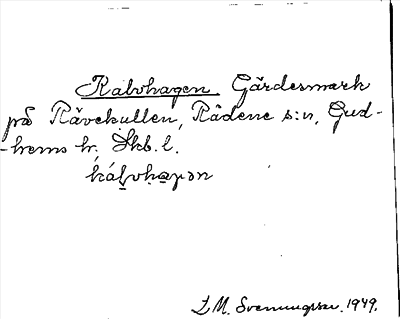 Kalvhagen, Gärdesmark
på Rävekullen, Rådene s:n, Gud-
-hems hr, Skb. l.
kálvhaɡən
L M. Svenungsson. 1949.